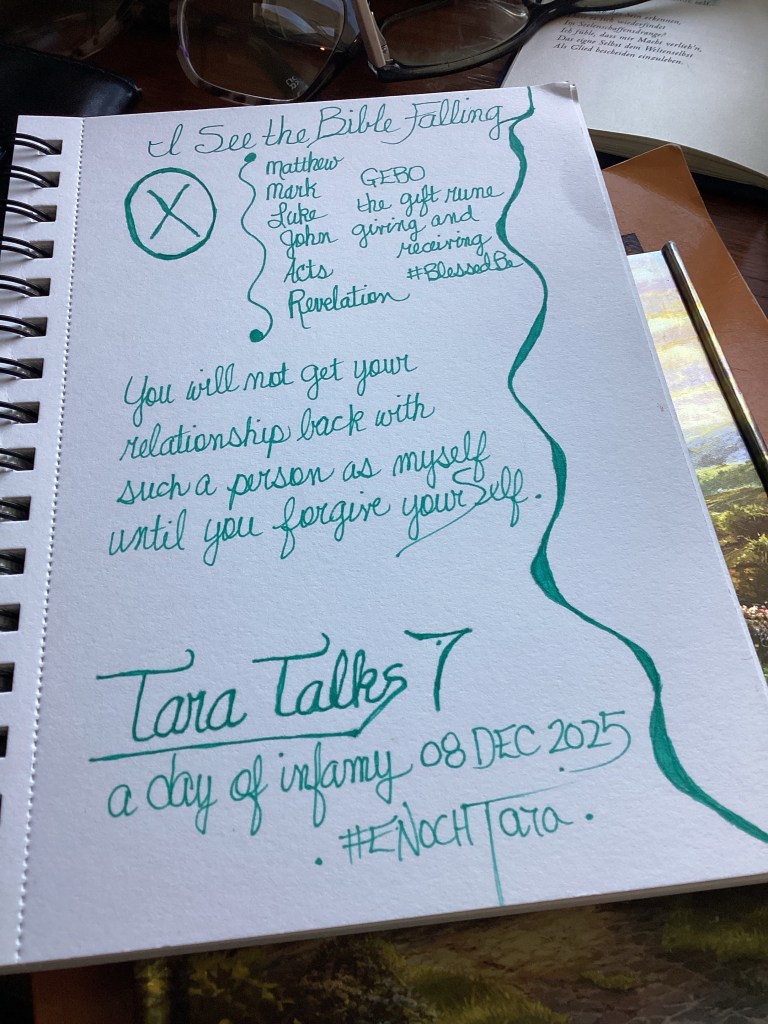 I See the Bible Falling
X
Matthew
Mark
Luke
John
Acts
Revelation
GEBO
the gift rune
giving and
receiving
#BlessedBe
You will not get your
relationship back with
such a person as myself
until you forgive yourSelf.
Tara Talks 7
a day of infamy 08 DEC 2025
. #ENOCHTara .
erkennen,
wiederfindet
Im Seelenschaffensdrange?
Ich fühle, dass mir Macht verlieh'n,
Das eigne Selbst dem Weltenselbst
Als Glied bescheiden einzuleben.